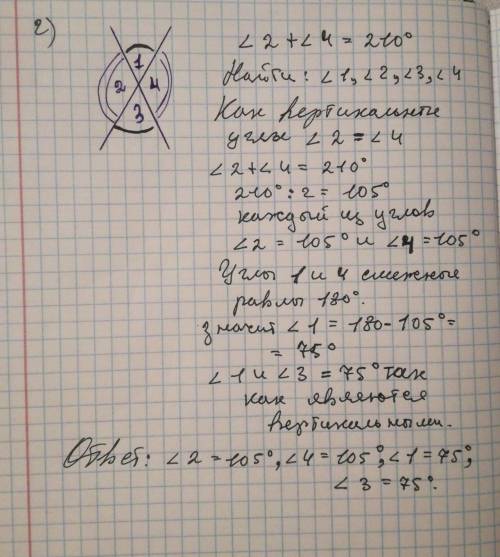 2)
1
2 4
3
∠2+∠4=210°
Найти: ∠1,∠2,∠3,∠4
Как вертикальные
углы ∠2=∠4
∠2+∠4=210°
210°:2=105°
каждый из углов
∠2=105° и ∠4=105°
Углы 1 и 4 смежные
равны 180°.
значит ∠1=180-105°=
=75°
∠1 и ∠3=75° так
как являются
вертикальными.
Ответ: ∠2=105°,∠4=105°,∠1=75°;
∠3=75°.